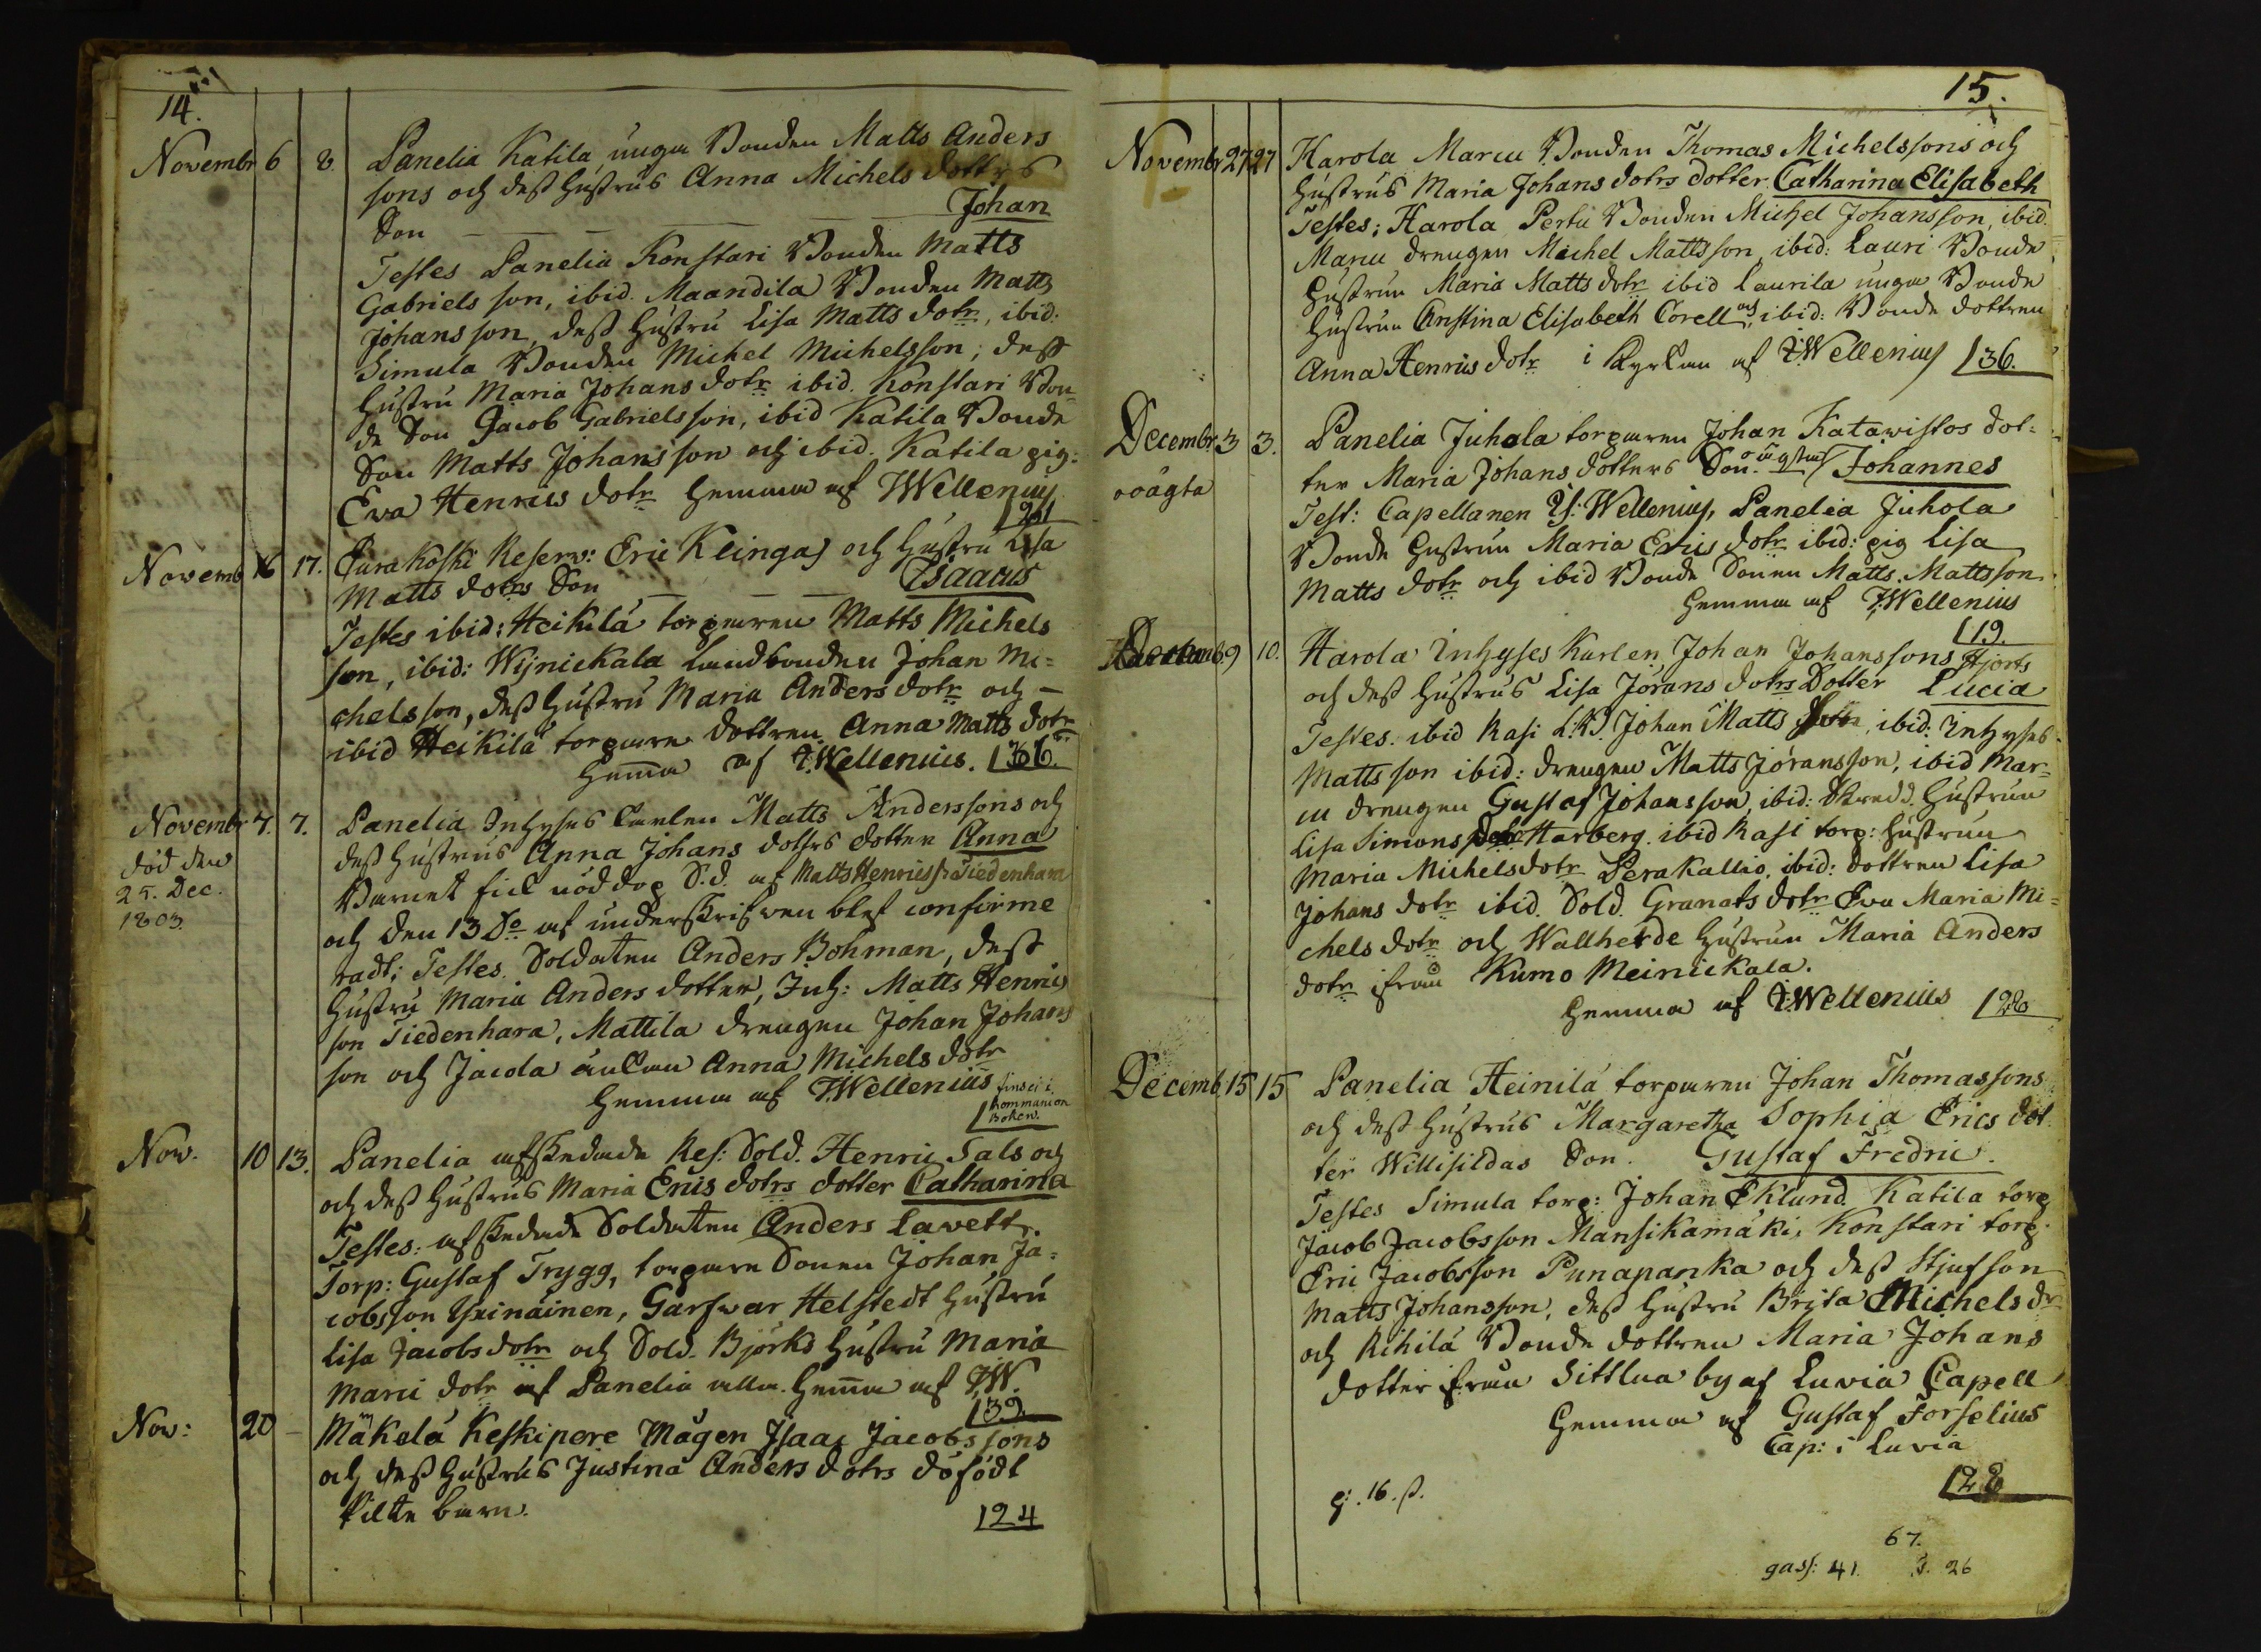 14.
Novembr 6 8. Panelia Katila unga Bonden Matts Anders
sons och dess hustrus Anna Michels dottrs
Son — Johan
Testes Panelia Konstari Bonden Matts
Gabriels son, ibid. Maandila Bonden Matts
Johansson, dess hustru Lisa Matts dotr, ibid:
Simula Bonden Michel Michelsson; dess
hustru Maria Johans dotr ibid. Konstari Bon=
de Son Jacob Gabrielsson, ibid Katila Bonde
Son Matts Johansson och ibid. Katila pig.
Eva Henrics dotr hemma af I Wellenius
Novemb 16 17. Eurakoski Reserv: Eric Klingas och hustru Lisa
Matts dotrs Son — — — Isaacus
Testes ibid: Heikilä torparen Matts Michels
son, ibid: Wijnickala Landbonden Johan Mi=
chelsson, dess hustru Maria Anders dotr och —
ibid Heikilä torpare dottren Anna Matts dotr
hemma af I. Wellenius. 36.
Novembr 7. 7. Panelia Inhyses Karlen Matts Anderssons och
död den
25. Dec.
1803.
dess hustrus Anna Johans dotters dotter Anna
Barnet fick nöddop S.d. af Matts Henricss Tiedenhara
och den 13 Do af underskrifven blef confirme
radt; Testes. Soldaten Anders Bohman, dess
hustru Maria Anders dotter, Inh: Matts Henrics
son Tiedenhara, Mattila drengen Johan Johans
son och Jacola änkan Anna Michels dotr
hemma af I. Wellenius finsei i
kommunion
Boken.
Nov. 10 13. Panelia afskedade Res: Sold. Henric Sals och
och dess hustrus Maria Erics dotrs dotter Catharina
Testes: afskedade Soldaten Anders Lavett,
Torp: Gustaf Trygg, torpare Sonen Johan Ja=
cobsson Yxinäinen, Garfvar Helstedt hustru
Lisa Jacobs dotr och Sold. Björks hustru Maria
Marci dotr af Panelia alla. hemma af I.W.
39.
Nov: 20 — Mäkelä Keskipere Mågen Isaac Jacobssons
och dess hustrus Justina Anders dotrs döfödt
Pilte barn.
24
15.
Novembr 27. 27 Harola Marcu Bonden Thomas Michelssons och
hustrus Maria Johans dotrs dotter Catharina Elisabeth
Testes; Harola Pertu Bonden Michel Johansson, ibid.
Marcu drengen Michel Mattsson, ibid: Lauri Bonde
hustrun Maria Matts dotr ibid Laurila unga Bonde
hustrun Christina Elisabeth Corell, ibid: Bonde dottren
Anna Henrics dotr i Kyrkan af I Wellenius 36.
Decembr. 3 3. Panelia Juhola torparen Johan Katavistos dot=
oägta
ter Maria Johans dotters Son. oägta Johannes
Test: Capellanen Is: Wellenius, Panelia Juhola
Bonde hustrun Maria Erics dotr ibid: pig Lisa
Matts dotr och ibid Bonde Sonen Matts Mattsson
hemma af I. Wellenius
19.
Decemb. 9 10. Harola Inhyses Karlen Johan Johanssons Hjorts
och dess hustrus Lisa Jörans dotrs Dotter Lucia
Testes. ibid Kasi L.B. Johan Matts , ibid: Inhyses
Mattsson ibid: drengen Matts Jöransson, ibid Mar=
cu drengen Gustaf Johansson, ibid: Skredd. hustrun
Lisa Simons Harberg. ibid Kasi torp: hustrun
Maria Michelsdotr Perakallio, ibid: dottren Lisa
Johans dotr ibid. Sold. Granats dotr Eva Maria Mi=
chels dotr och Wallherde hustrun Maria Anders
dotr ifrån Kumo Meinickala.
hemma af I. Wellenius 20
Decemb. 15 15 Panelia Heinilä torparen Johan Thomassons
och dess hustrus Margaretha Sophia Erics dot
ter Willisildas Son. Gustaf Fredric.
Testes Simula torp: Johan Eklund Katila torp
Jacob Jacobsson Mansikamäki, Konstari torp.
Eric Jacobsson Punapanka och dess Stjufson
Matts Johansson, dess hustru Brita Michels dr
och Kihilä Bonde dottren Maria Johans
dotter ifrån Sittlua by af Luvia Capell
hemma af Gustaf Forselius
Cap: i Luvia
g:. 16. s.
67.
gass: 41. F. 26